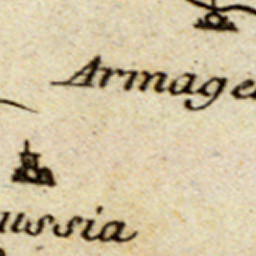 Armage
ussia